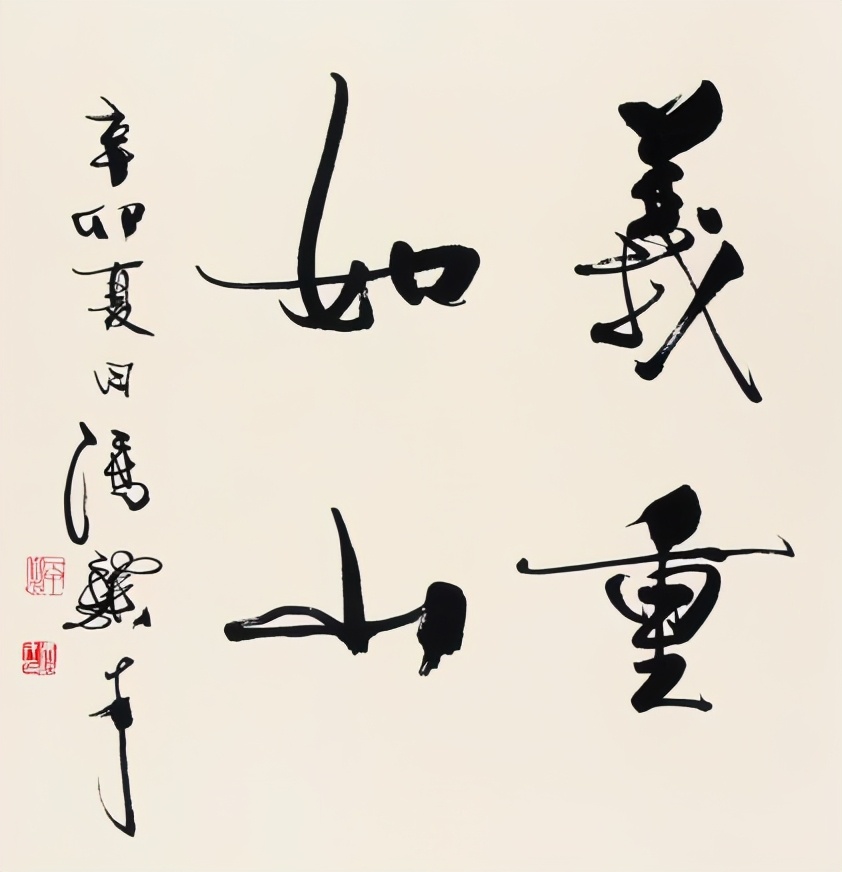 義重
如山
辛卯夏日馮